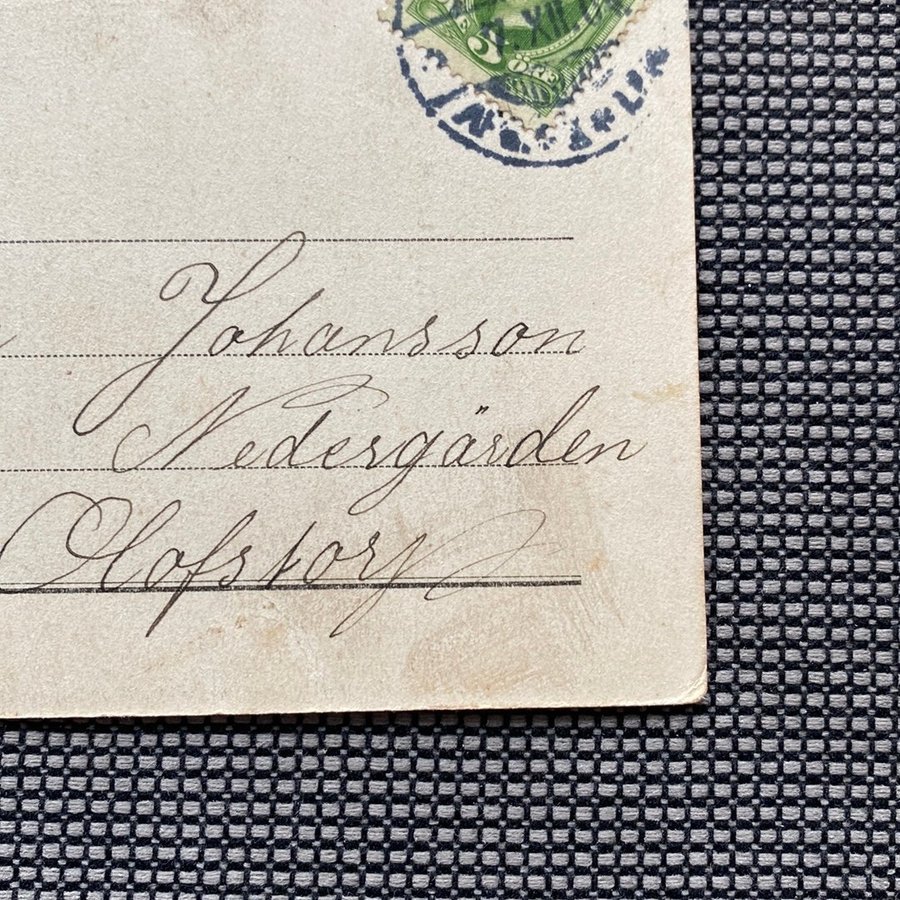 5 ÖRE
XII
Johansson
Nedergården
Hofstorp